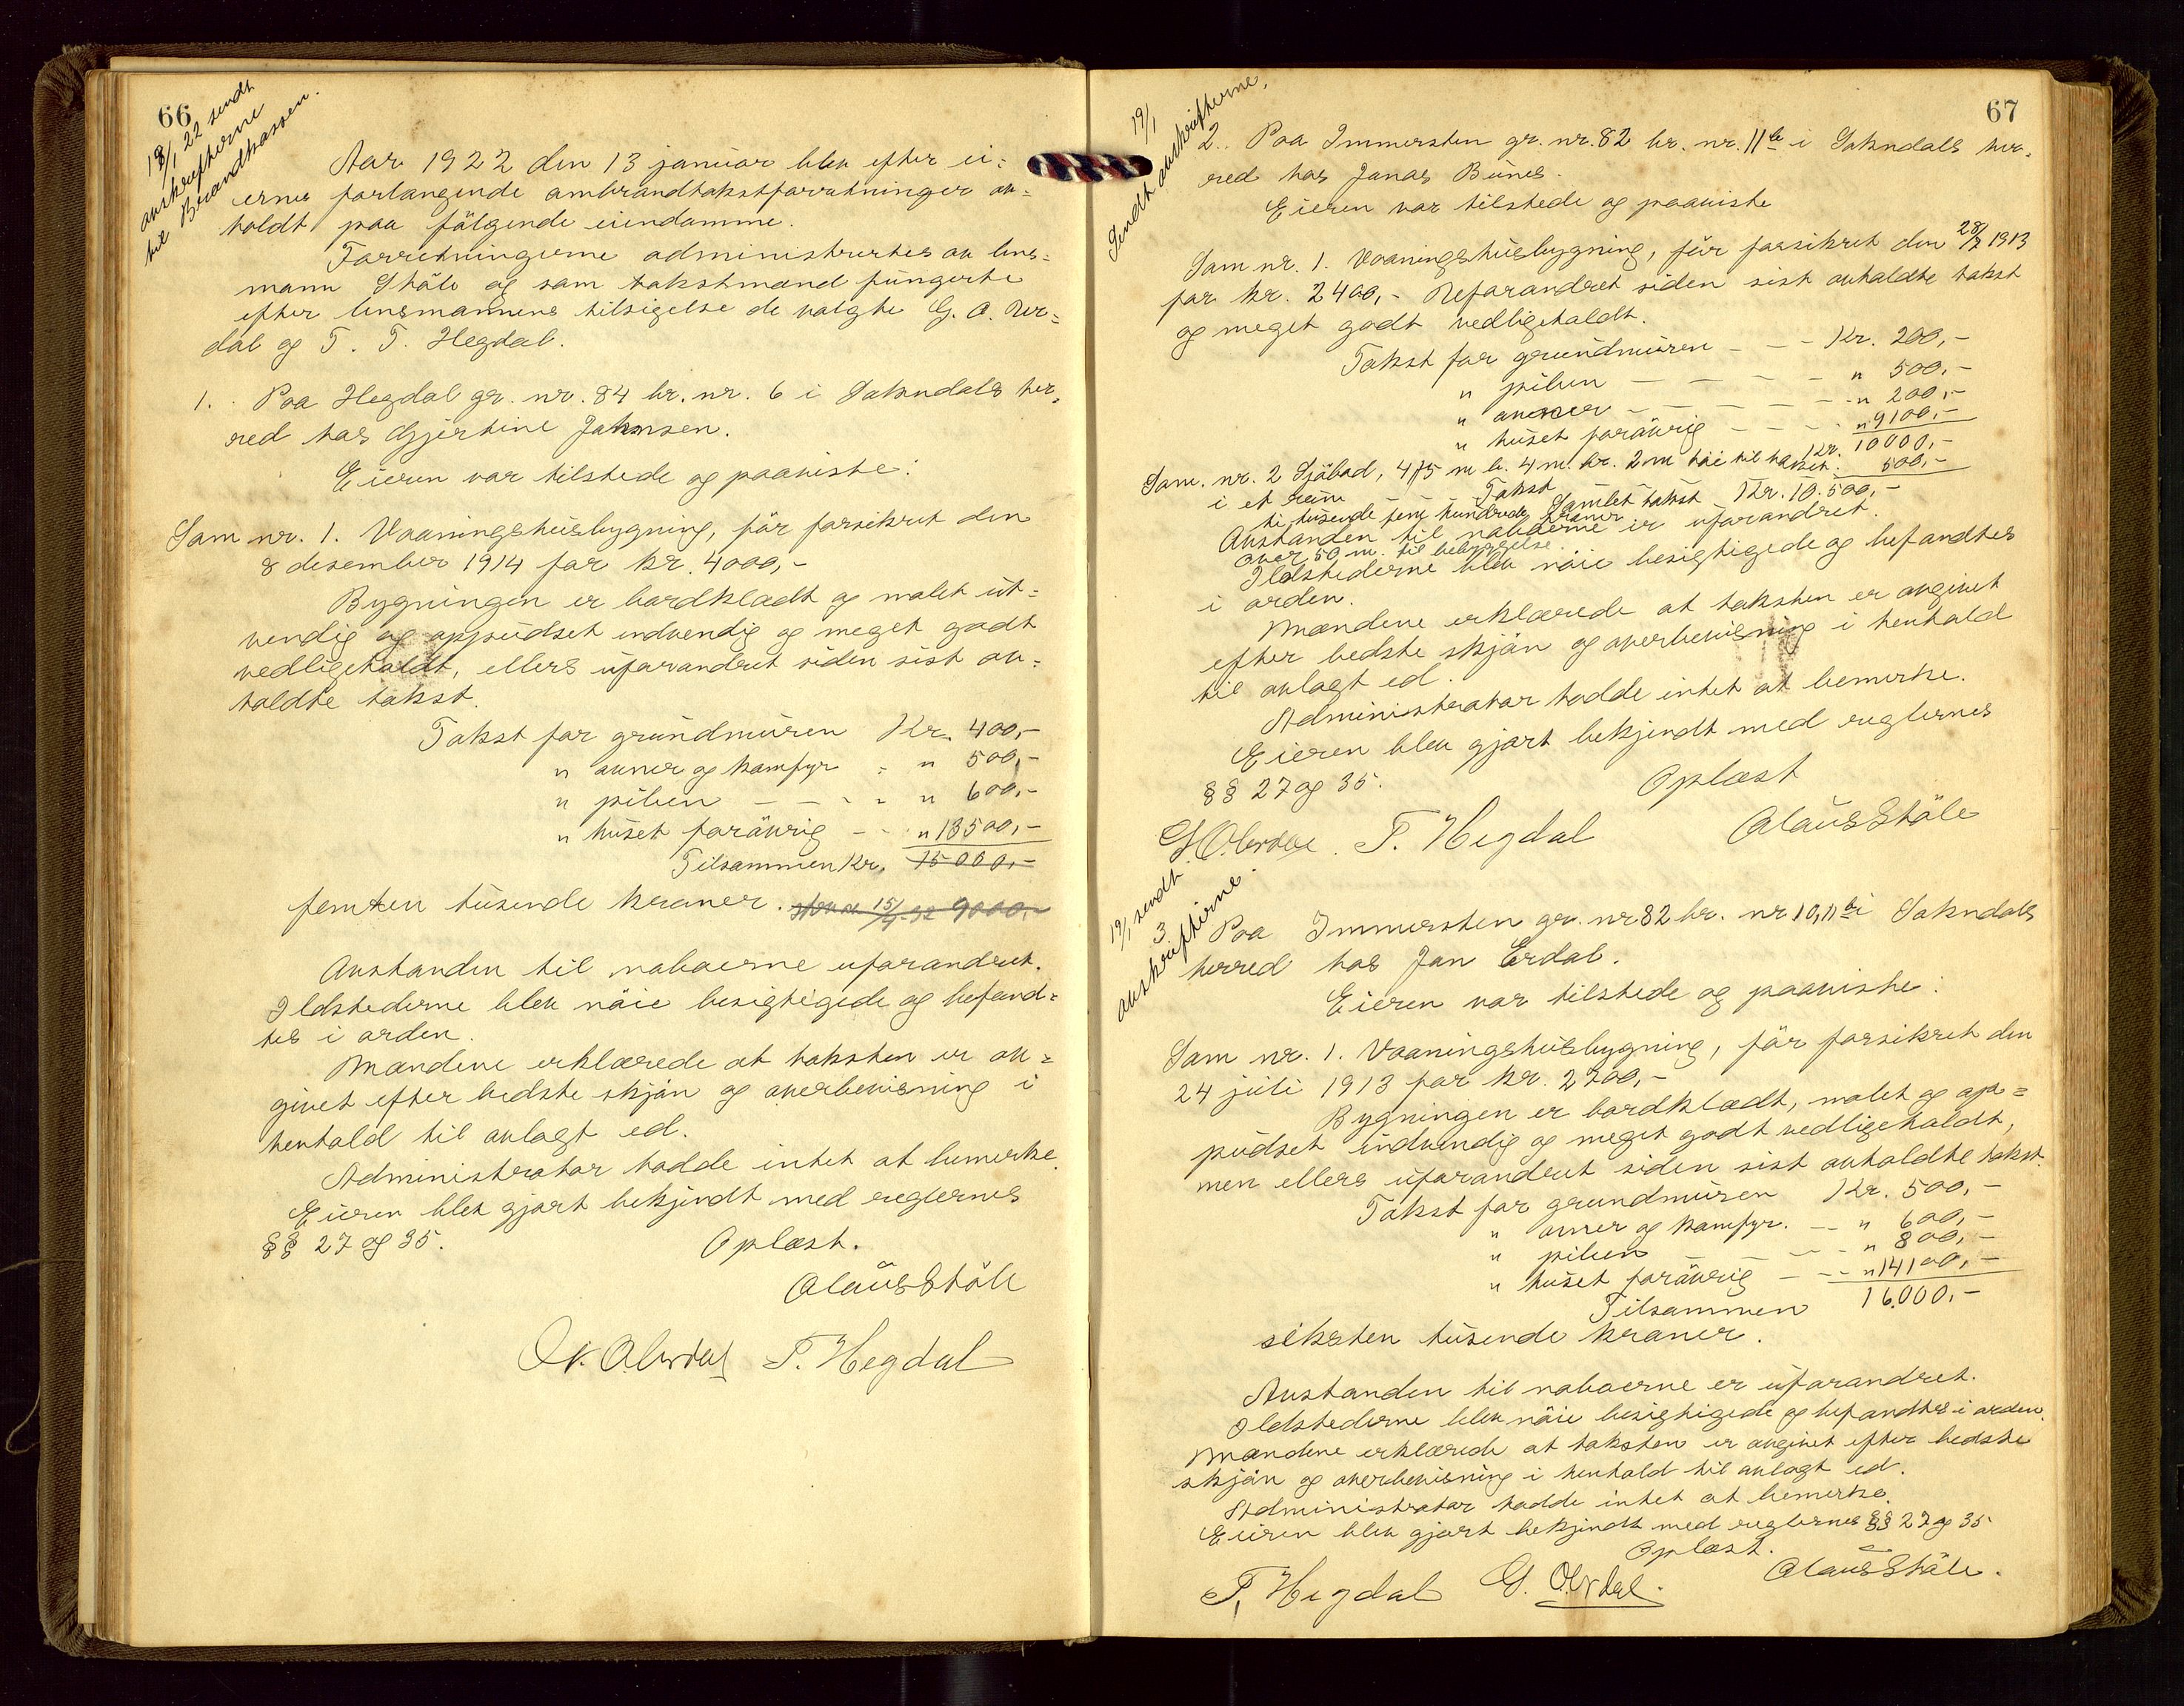 66
18/1 22 sendt
avskrifterne
til Brandkassen.
Aar 1922 den 13 januar blev efter ei=
ernes forlangende ombrandtakstforretninger av=
holdt paa følgende eiendomme.
Forretningerne administrertes av lens=
mann Ståle og som takstmænd fungerte
efter lensmannens tilsigelse de valgte G. O.
dal og T. T. Hegdal.
1. Paa Hegdal gr. nr. 84 br. nr. 6 i Sokndals her,
red hos Gjertine Johnsen.
Eieren var tilstede og paaviste:
Som nr. 1. Vaaningshusbygning, før forsikret den
8 desember 1914 for kr. 4000,-
Bygningen er bordklædt og malet ut=
vendig og oppudset indvendig og meget godt
vedligeholdt, ellers uforandret siden sist av=
holdte takst.
Takst for grundmuren Kr. 400,-
" ovner og komfyr - " 500,-
" piben - - - - " 600,-
" huset forøvrig - - " 13500,-
Tilsammen Kr. 15000,-
femten tusende kroner. 15/4-32 9000,-
Avstanden til naboerne uforandret.
Ildstederne blev nøie besigtigede og befand=
tes i orden.
Mændene erklærede at taksten er av=
givet efter bedste skjøn og overbevisning i
henhold til avlagt ed.
Administrator hadde intet at bemerke.
Eieren blev gjort bekjendt med reglernes
§§ 27 og 35.
Oplæst.
Olaus Ståle
T. Hegdal
67
19/1
Sendt avskrifterne.
2. Paa Immersten gr. nr. 82 br. nr. 11 b i Sokndals her,
red hos Jonas Bunes.
Eieren var tilstede og paaviste
Som nr. 1. Vaaningshusbygning, før forsikret den 28/7 1913
for kr. 2400,- Uforandret siden sist avholdte takst
og meget godt vedligeholdt.
Takst for grundmuren - - - Kr. 200,-
" piben - - - - - " 500,-
" ovner - - - - - " 200,-
" huset forøvrig - - - - " 9100,-
Kr. 10000,-
Som nr. 2 Sjøbod, 4,75 m l. 4 m. br. 2 m høi til taket. 500,-
i et rum Takst
Samlet takst Kr. 10.500,-
ti tusende fem hundrede kroner
Avstanden til naboerne er uforandret.
over 50 m. til bebyggelse.
Ildstederne blev nøie besigtigede og befandtes
i orden.
Mændene erklærede at taksten er avgivet
efter bedste skjøn og overbevisning i henhold
til avlagt ed.
Administrator hadde intet at bemerke.
Eieren blev gjort bekjendt med reglernes
§§ 27 og 35.
Oplæst
T. Hegdal Olaus Ståle
19/1 sendt
avskrifterne.
3. Paa Immersten gr. nr 82 br. nr 10, 11 a i Sokndals
herred hos Jan Erdal.
Eieren var tilstede og paaviste:
Som nr. 1. Vaaningshusbygning, før forsikret den
24 juli 1913 for kr. 2700,-
Bygningen er bordklædt, malet og op=
pudset indvendig og meget godt vedligeholdt,
men ellers uforandret siden sist avholdte takst.
Takst for grundmuren Kr. 500,-
" ovner og komfyr. - - " 600,-
" piben - - - " 800,-
" huset forøvrig - - - " 14100,-
Tilsammen 16.000,-
seksten tusende kroner.
Avstanden til naboerne er uforandret.
Ildstederne blev nøie besigtigede og befandtes i orden.
Mændene erklærede at taksten er avgivet efter bedste
skjøn og overbevisning i henhold til avlagt ed.
Administrator hadde intet at bemerke.
Eieren blev gjort bekjendt med reglernes §§ 27 og 35
Oplæst.
T. Hegdal Olaus Ståle.